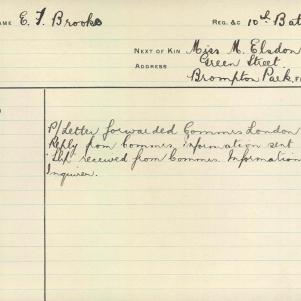 NAME E. F. Brooks REG. &C 10th Bat
NEXT OF KIN Miss M. Elsdon
ADDRESS Green Street
Brompton Park,
P/Letter forwarded Commrs London
Reply from Commrs, information sent
received from Commrs. Information